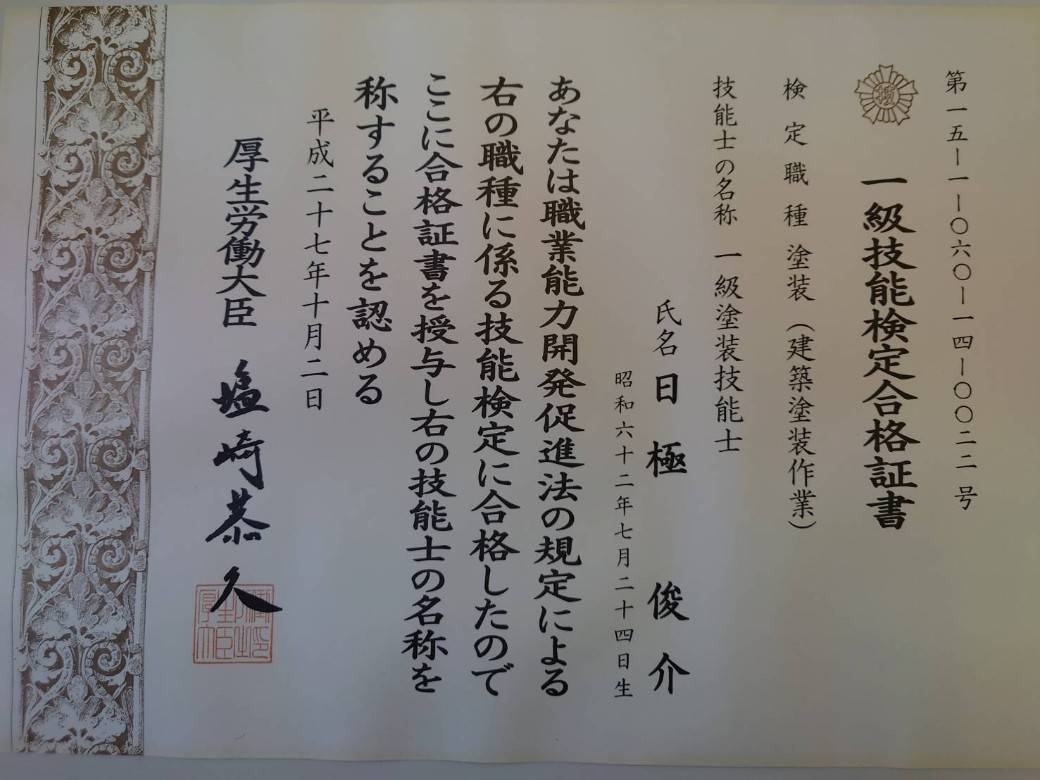 第一五―一―〇六〇―一四―〇〇二二号
一級技能検定合格証書
検定職種 塗装（建築塗装作業）
技能士の名称 一級塗装技能士
氏名 日極 俊介
昭和六十二年七月二十四日生
あなたは職業能力開発促進法の規定による
右の職種に係る技能検定に合格したので
ここに合格証書を授与し右の技能士の名称を
称することを認める
平成二十七年十月二日
厚生労働大臣 塩崎恭久